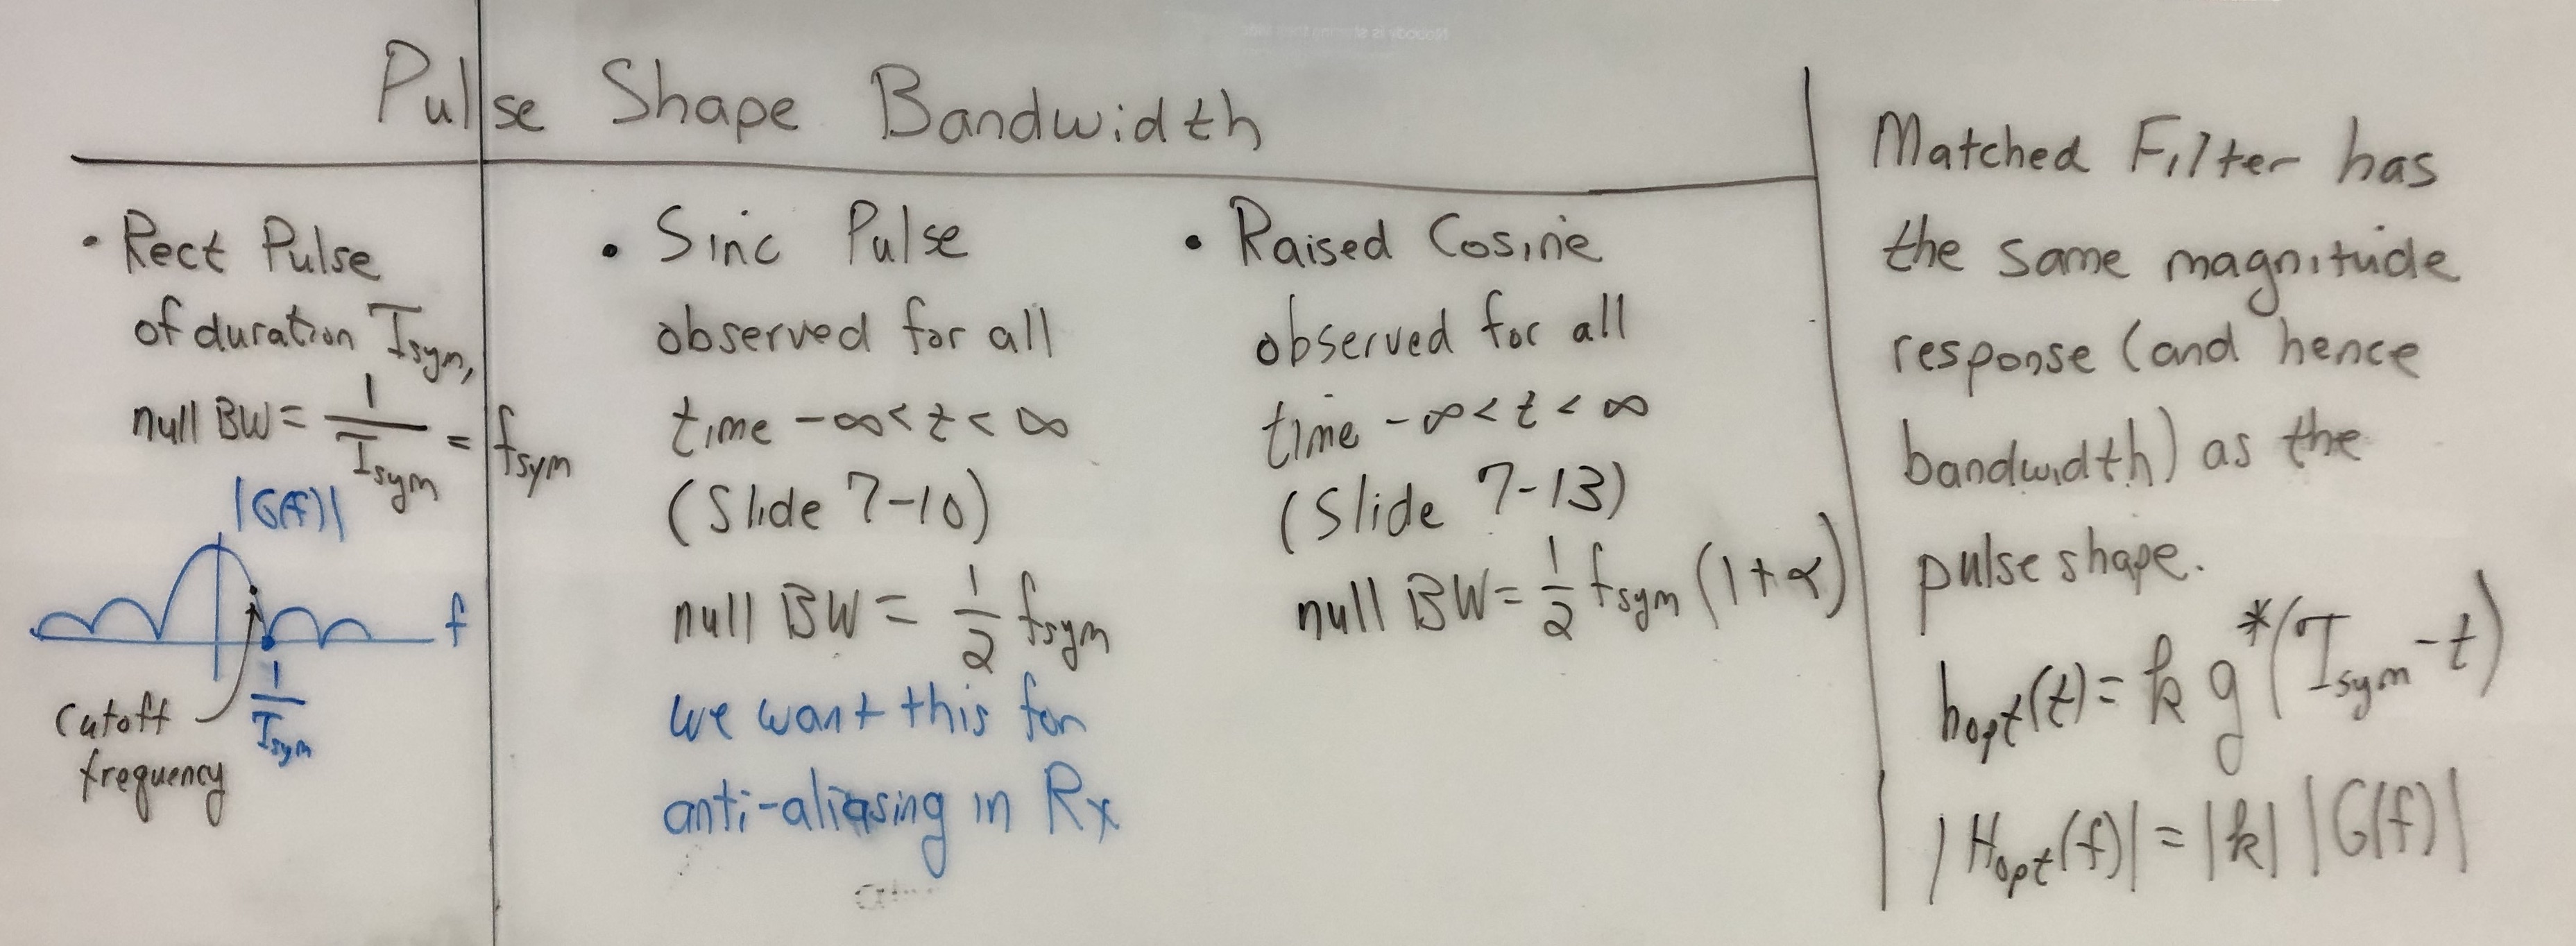 Pulse Shape Bandwidth
• Rect Pulse
of duration T_sym,
null BW = 1/T_sym = f_sym
|G(f)|
f
1/T_sym
cutoff
frequency
• Sinc Pulse
observed for all
time -∞ < t < ∞
(Slide 7-10)
null BW = 1/2 f_sym
we want this for
anti-aliasing in Rx
• Raised Cosine
observed for all
time -∞ < t < ∞
(Slide 7-13)
null BW = 1/2 f_sym (1+α)
Matched Filter has
the same magnitude
response (and hence
bandwidth) as the
pulse shape.
h_opt(t) = k g*(T_sym - t)
|H_opt(f)| = |k| |G(f)|